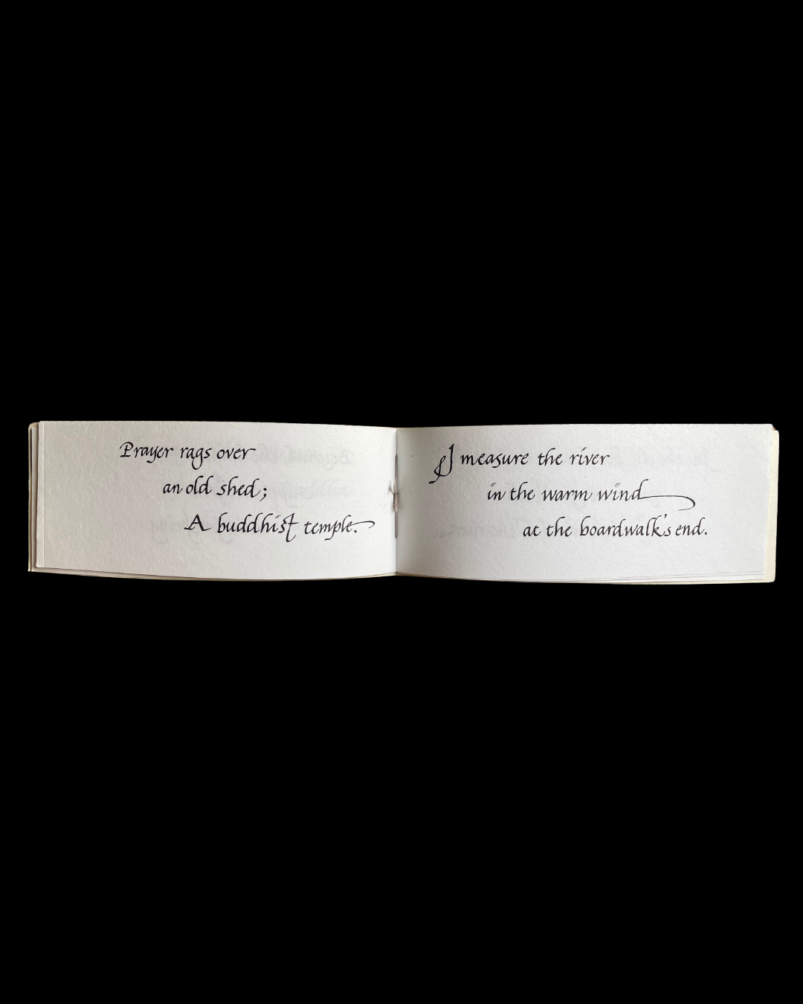 Prayer rags over
an old shed;
A buddhist temple.
I measure the river
in the warm wind
at the boardwalk's end.